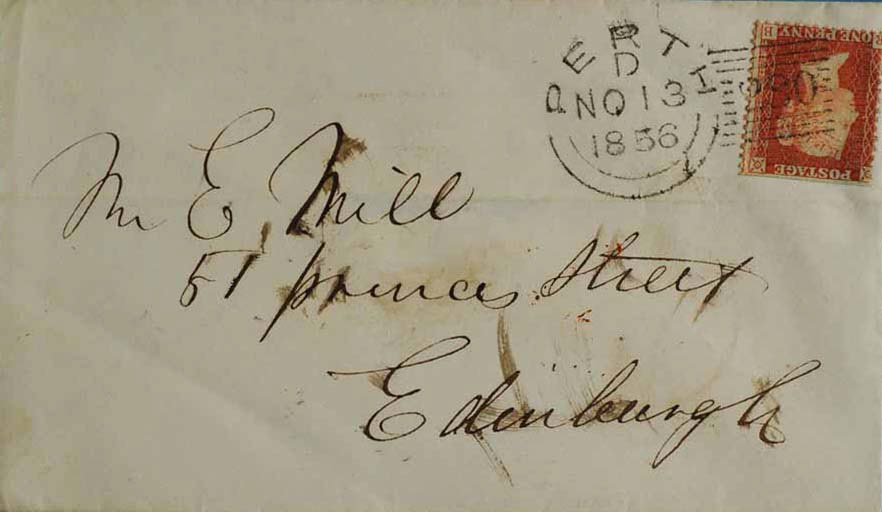 PERTH
D
NO 13
1856
ONE PENNY
POSTAGE
Mr E. Mill
51 princes Street
Edinburgh